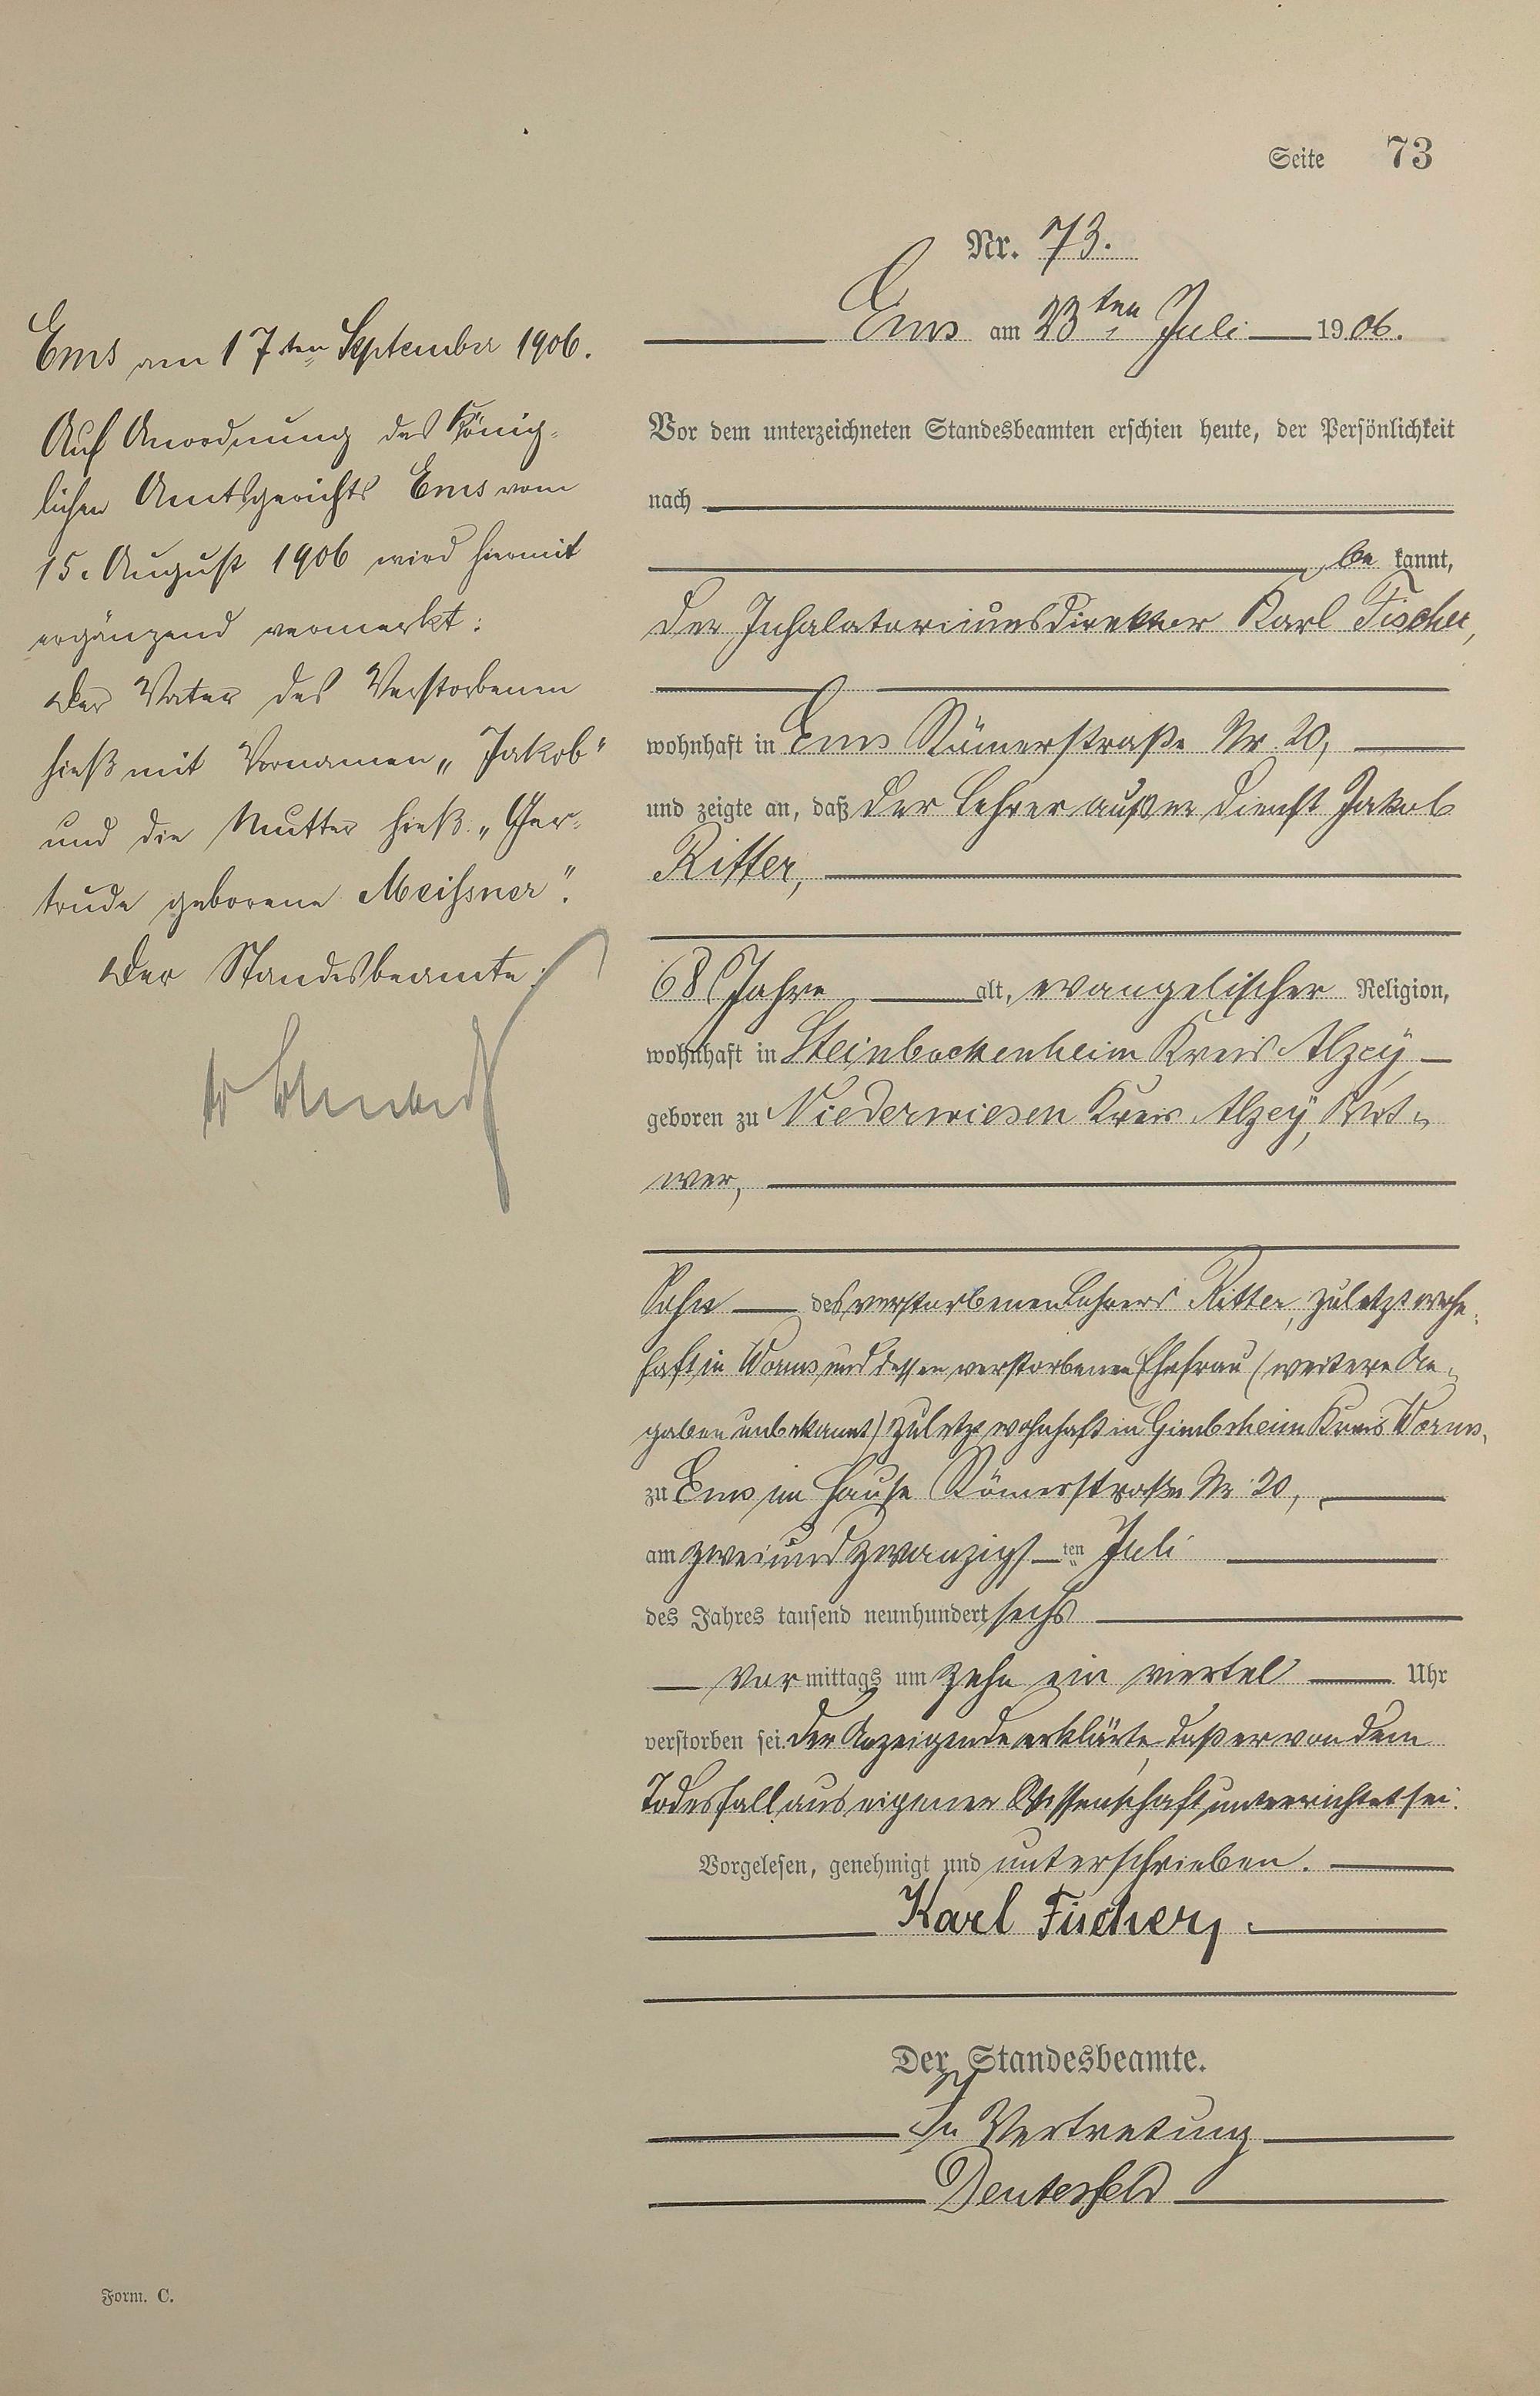 Seite 73
Nr. 73.
Ems am 23ten Juli 1906.
Vor dem unterzeichneten Standesbeamten erschien heute, der Persönlichkeit
nach
be kannt,
der Inhalatoriumsdirektor Karl Fischer,
wohnhaft in Ems Römerstraße Nr. 20,
und zeigte an, daß der Lehrer außer Dienst Jakob
Ritter,
68 Jahre alt, evangelischer Religion,
wohnhaft in Steinbockenheim Kreis Alzey
geboren zu Niederwiesen Kreis Alzey, Wit-
wer,
Sohn des verstorbenen Lehrers Ritter, zuletzt wohn-
haft in Worms und dessen verstorbenen Ehefrau (weitere An-
gaben unbekannt) zuletzt wohnhaft in Gimbsheim Kreis Worms,
zu Ems im Hause Römerstraße Nr. 20,
am zweiundzwanzigsten Juli
des Jahres tausend neunhundert sechs
Vor mittags um zehn ein viertel Uhr
verstorben sei. Der Anzeigende erklärte, daß er von dem
Todesfall aus eigener Wissenschaft unterrichtet sei.
Vorgelesen, genehmigt und unterschrieben.
Karl Fischer,
Der Standesbeamte.
In Vertretung
Deutesfeld
Ems am 17ten September 1906.
Auf Anordnung des König-
lichen Amtsgerichts Ems vom
15. August 1906 wird hiermit
ergänzend vermerkt:
Der Vater des Verstorbenen
hieß mit Vornamen „Jakob"
und die Mutter hieß „Ger-
trude geborene Meißner".
Der Standesbeamte:
Form. C.